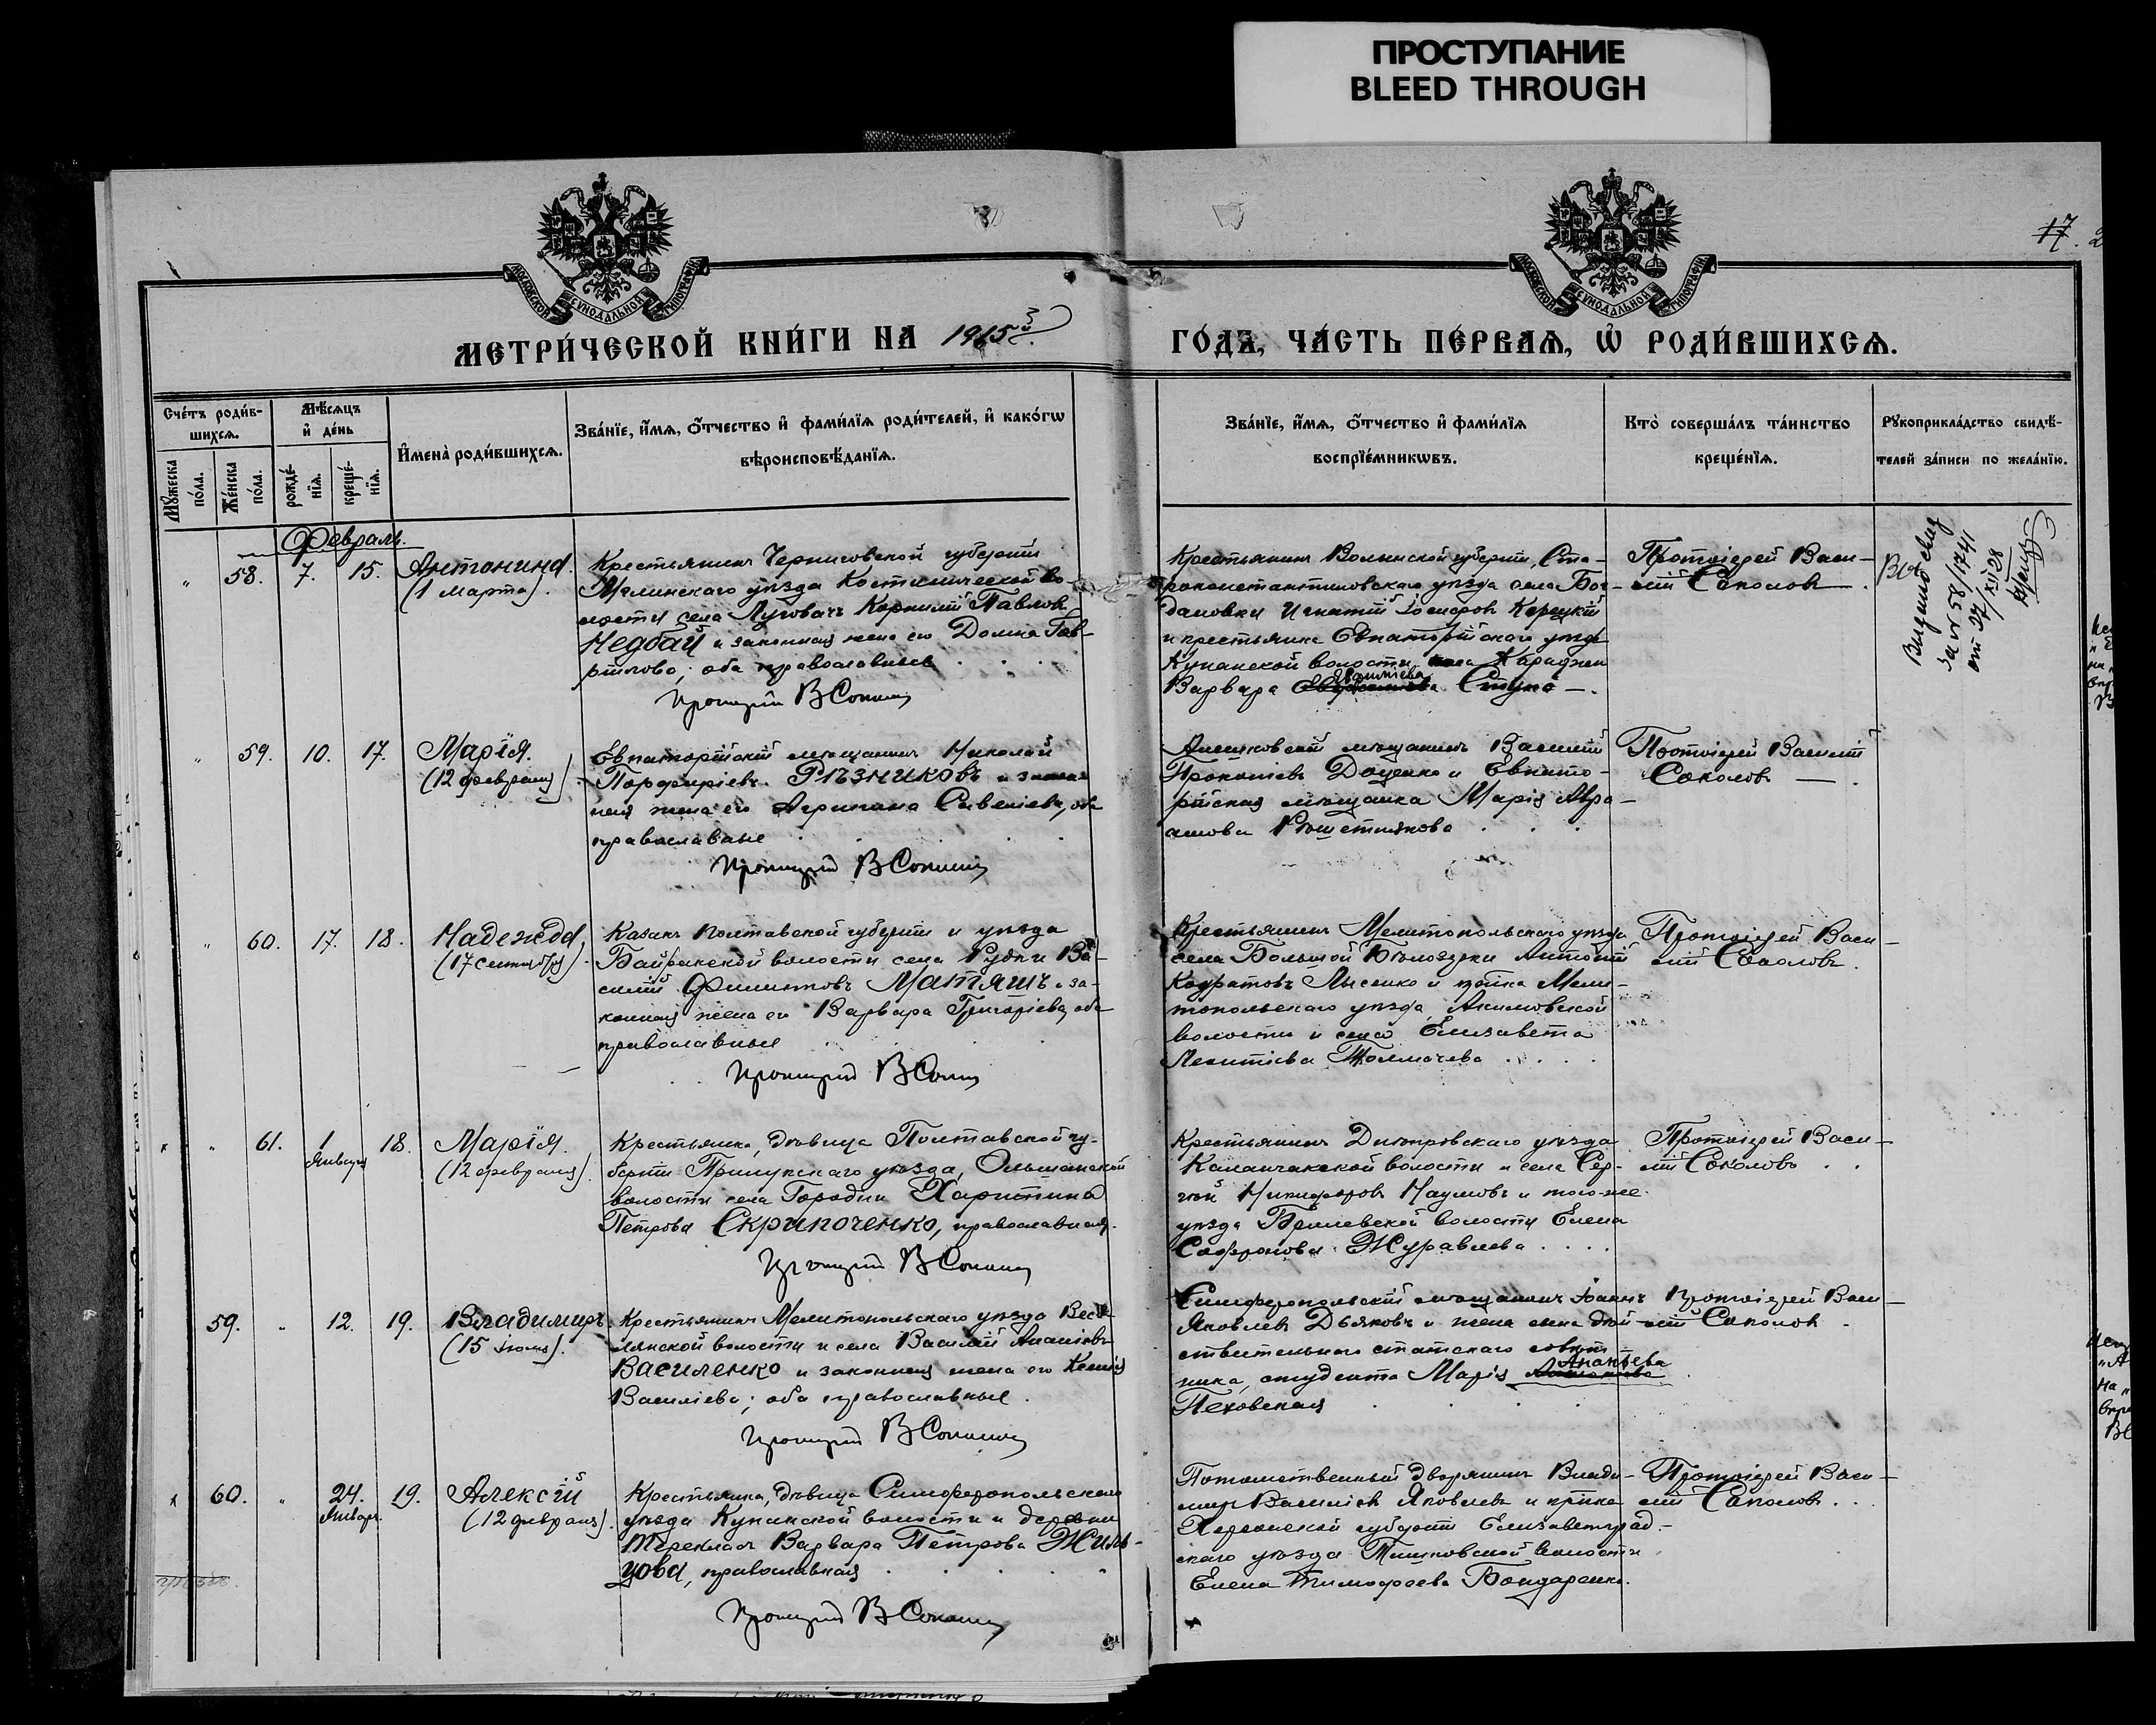 ПРОСТУПАНИЕ
BLEED THROUGH
17. 2
МОСКОВСКОЙ СѴНОДАЛЬНОЙ ТИПОГРАФІИ
МОСКОВСКОЙ СѴНОДАЛЬНОЙ ТИПОГРАФІИ
МЕТРИ́ЧЕСКОЙ КНИ́ГИ НА 1915й
ГО́ДЪ, ЧА́СТЬ ПЕ́РВАЯ, Ѡ҆ РОДИ́ВШИХСЯ.
Сче́тъ роди́в-
шихся.
Мꙋ́жеска по́ла.
Же́нска по́ла.
Мѣ́сяцъ
и҆ де́нь
рожде́-
нїя.
креще́-
нїя.
И҆мена̀ роди́вшихся.
Зва́нїе, и҆́мя, ѻ҆́тчество и҆ фами́лїя роди́телей, и҆ како́гѡ
вѣроисповѣ́данїя.
Зва́нїе, и҆́мя, ѻ҆́тчество и҆ фами́лїя
воспрїе́мникѡвъ.
Кто̀ соверша́лъ та́инство
креще́нїя.
Рꙋкоприкла́дство свидѣ́-
телей за́писи по жела́нїю.
Февраль.
" 58. 7. 15. Антонина.
(1 марта).
Крестьянинъ Черниговской губерніи
Мглинскаго уѣзда Костеничской во-
лости села Луговецъ Корнилій Павловъ
Недбай и законная жена его Домна Гав-
рилова; оба православные
Протоіерей В Соколовъ
Крестьянинъ Волынской губерніи, Ста-
роконстантиновскаго уѣзда села Бог-
дановки Игнатій Іосифовъ Корецкій
и крестьянка Евпаторійскаго уѣзда
Кунанской волости, села Караджи
Варвара Стука —.
Протоіерей Васи-
лій Соколовъ.
Выдано свид
за № 58/1741
от 27/XI 28
" 59. 10. 17. Марія.
(12 февраля).
Евпаторійскій мѣщанинъ Николай
Порфиріевъ Рѣзниковъ и закон-
ная жена его Агрипина Савеліева, оба
православные
Протоіерей В Соколовъ
Алешковскій мѣщанинъ Василій
Прокопіевъ Доценко и Евпато-
рійская мѣщанка Марія Авра-
амова Рѣшетнякова
Протоіерей Василій
Соколовъ —.
" 60. 17. 18. Надежда,
(17 сентября).
Казакъ Полтавской губерніи и уѣзда
Байракской волости села Рудки Ва-
силій Филиповъ Матяшъ и за-
конная жена его Варвара Григоріева, оба
православные
Протоіерей В Соколовъ
Крестьянинъ Мелитопольскаго уѣзда
села Большой Бѣлозерки Антоній
Кодратовъ Лысенко и кр-нка Мели-
топольскаго уѣзда, Акимовской
волости и села Елизавета
Леонтіева Толмачева
Протоіерей Васи-
лій Соколовъ.
х " 61. 1 Января 18. Марія.
(12 февраля).
Крестьянка, дѣвица Полтавской гу-
берніи Прилукскаго уѣзда, Ольшанской
волости села Городни Харитина
Петрова Скрипоченко, православная.
Протоіерей В Соколовъ
Крестьянинъ Днѣпровскаго уѣзда
Каланчакской волости и села Сер-
гѣй Никифоровъ Наумовъ и того-же
уѣзда Брилевской волости Елена
Софронова Журавлева
Протоіерей Васи-
лій Соколовъ
59. " 12. 19. Владимиръ.
(15 іюля).
Крестьянинъ Мелитопольскаго уѣзда Весе-
лянской волости и села Василій Ананіевъ
Василенко и законная жена его Ксенія
Василіева; оба православные.
Протоіерей В Соколовъ
Симферопольскій мѣщанинъ Іоаннъ
Яковлевъ Дьяковъ и жена сына дѣй-
ствительнаго статскаго совѣт-
ника, студента Марія Ананьева
Пеховская
Протоіерей Васи-
лій Соколовъ
х 60. " 24. Января 19. Алексій
(12 февраля).
Крестьянка, дѣвица Симферопольскаго
уѣзда Кунанской волости и деревни
Тереклы Варвара Петрова Жиль-
цова, православная
Протоіерей В Соколовъ
Потомственный дворянинъ Влади-
миръ Василіевъ Яковлевъ и кр-нка
Херсонской губерніи Елизаветград-
скаго уѣзда Тишковской волости
Елена Тимофеева Бондаренко.
Протоіерей Васи-
лій Соколовъ